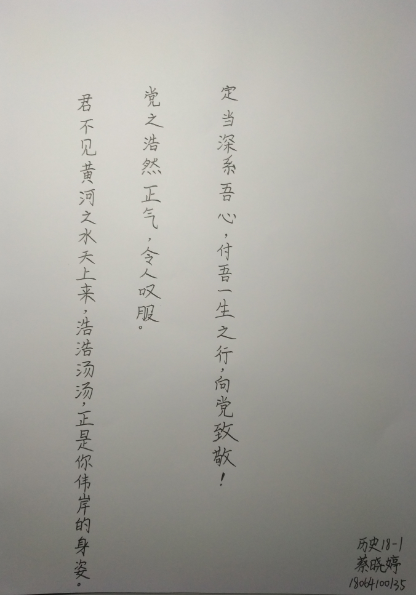 君不见黄河之水天上来，浩浩汤汤，正是你伟岸的身姿。
党之浩然正气，令人叹服。
定当深系吾心，付吾一生之行，向党致敬！
历史18-1
蔡晓婷
18064100135